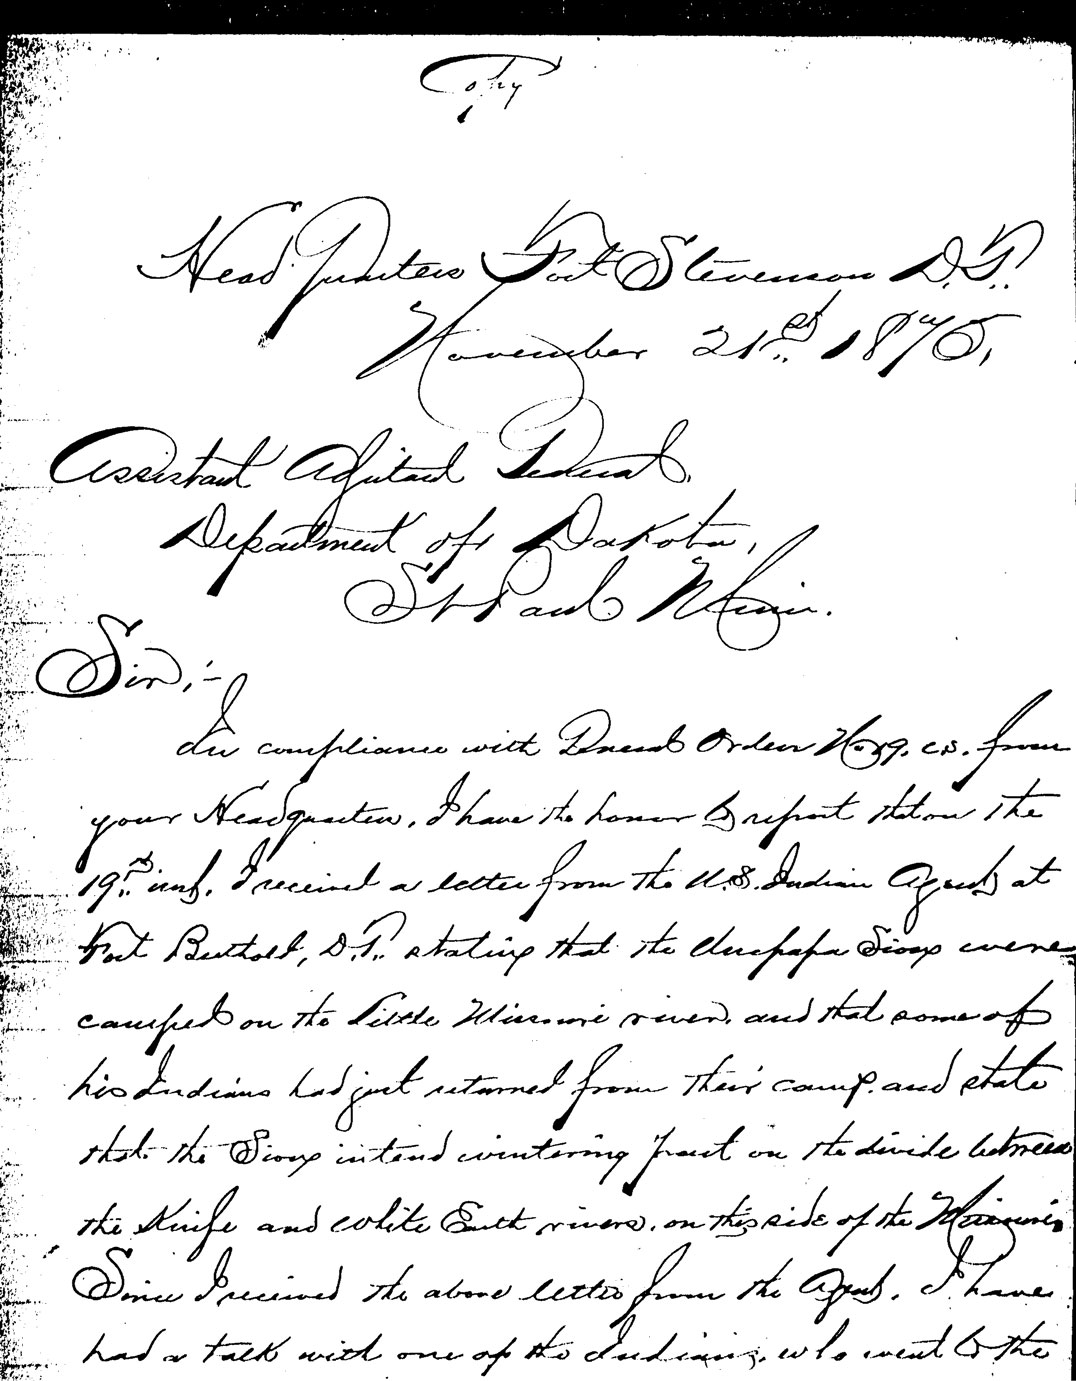 Copy
Head Quarters Fort Stevenson D.T.
November 21st 1875,
Assistant Adjutant General
Department of Dakota,
St Paul Minn.
Sir,:-
In compliance with General Orders No c.s. from
your Headquarters, I have the honor to report that on the
19th inst. I received a letter from the U.S. Indian Agent at
Fort Berthold, D.T. stating that the Uncpapa Sioux were
camped on the Little Missouri river, and that some of
his Indians had just returned from their camp. and state
that the Sioux intend wintering part on the divide between
the Knife and White Earth rivers, on this side of the Missouri.
Since I received the above letter from the Agent, I have
had a talk with one of the Indians, who went to the